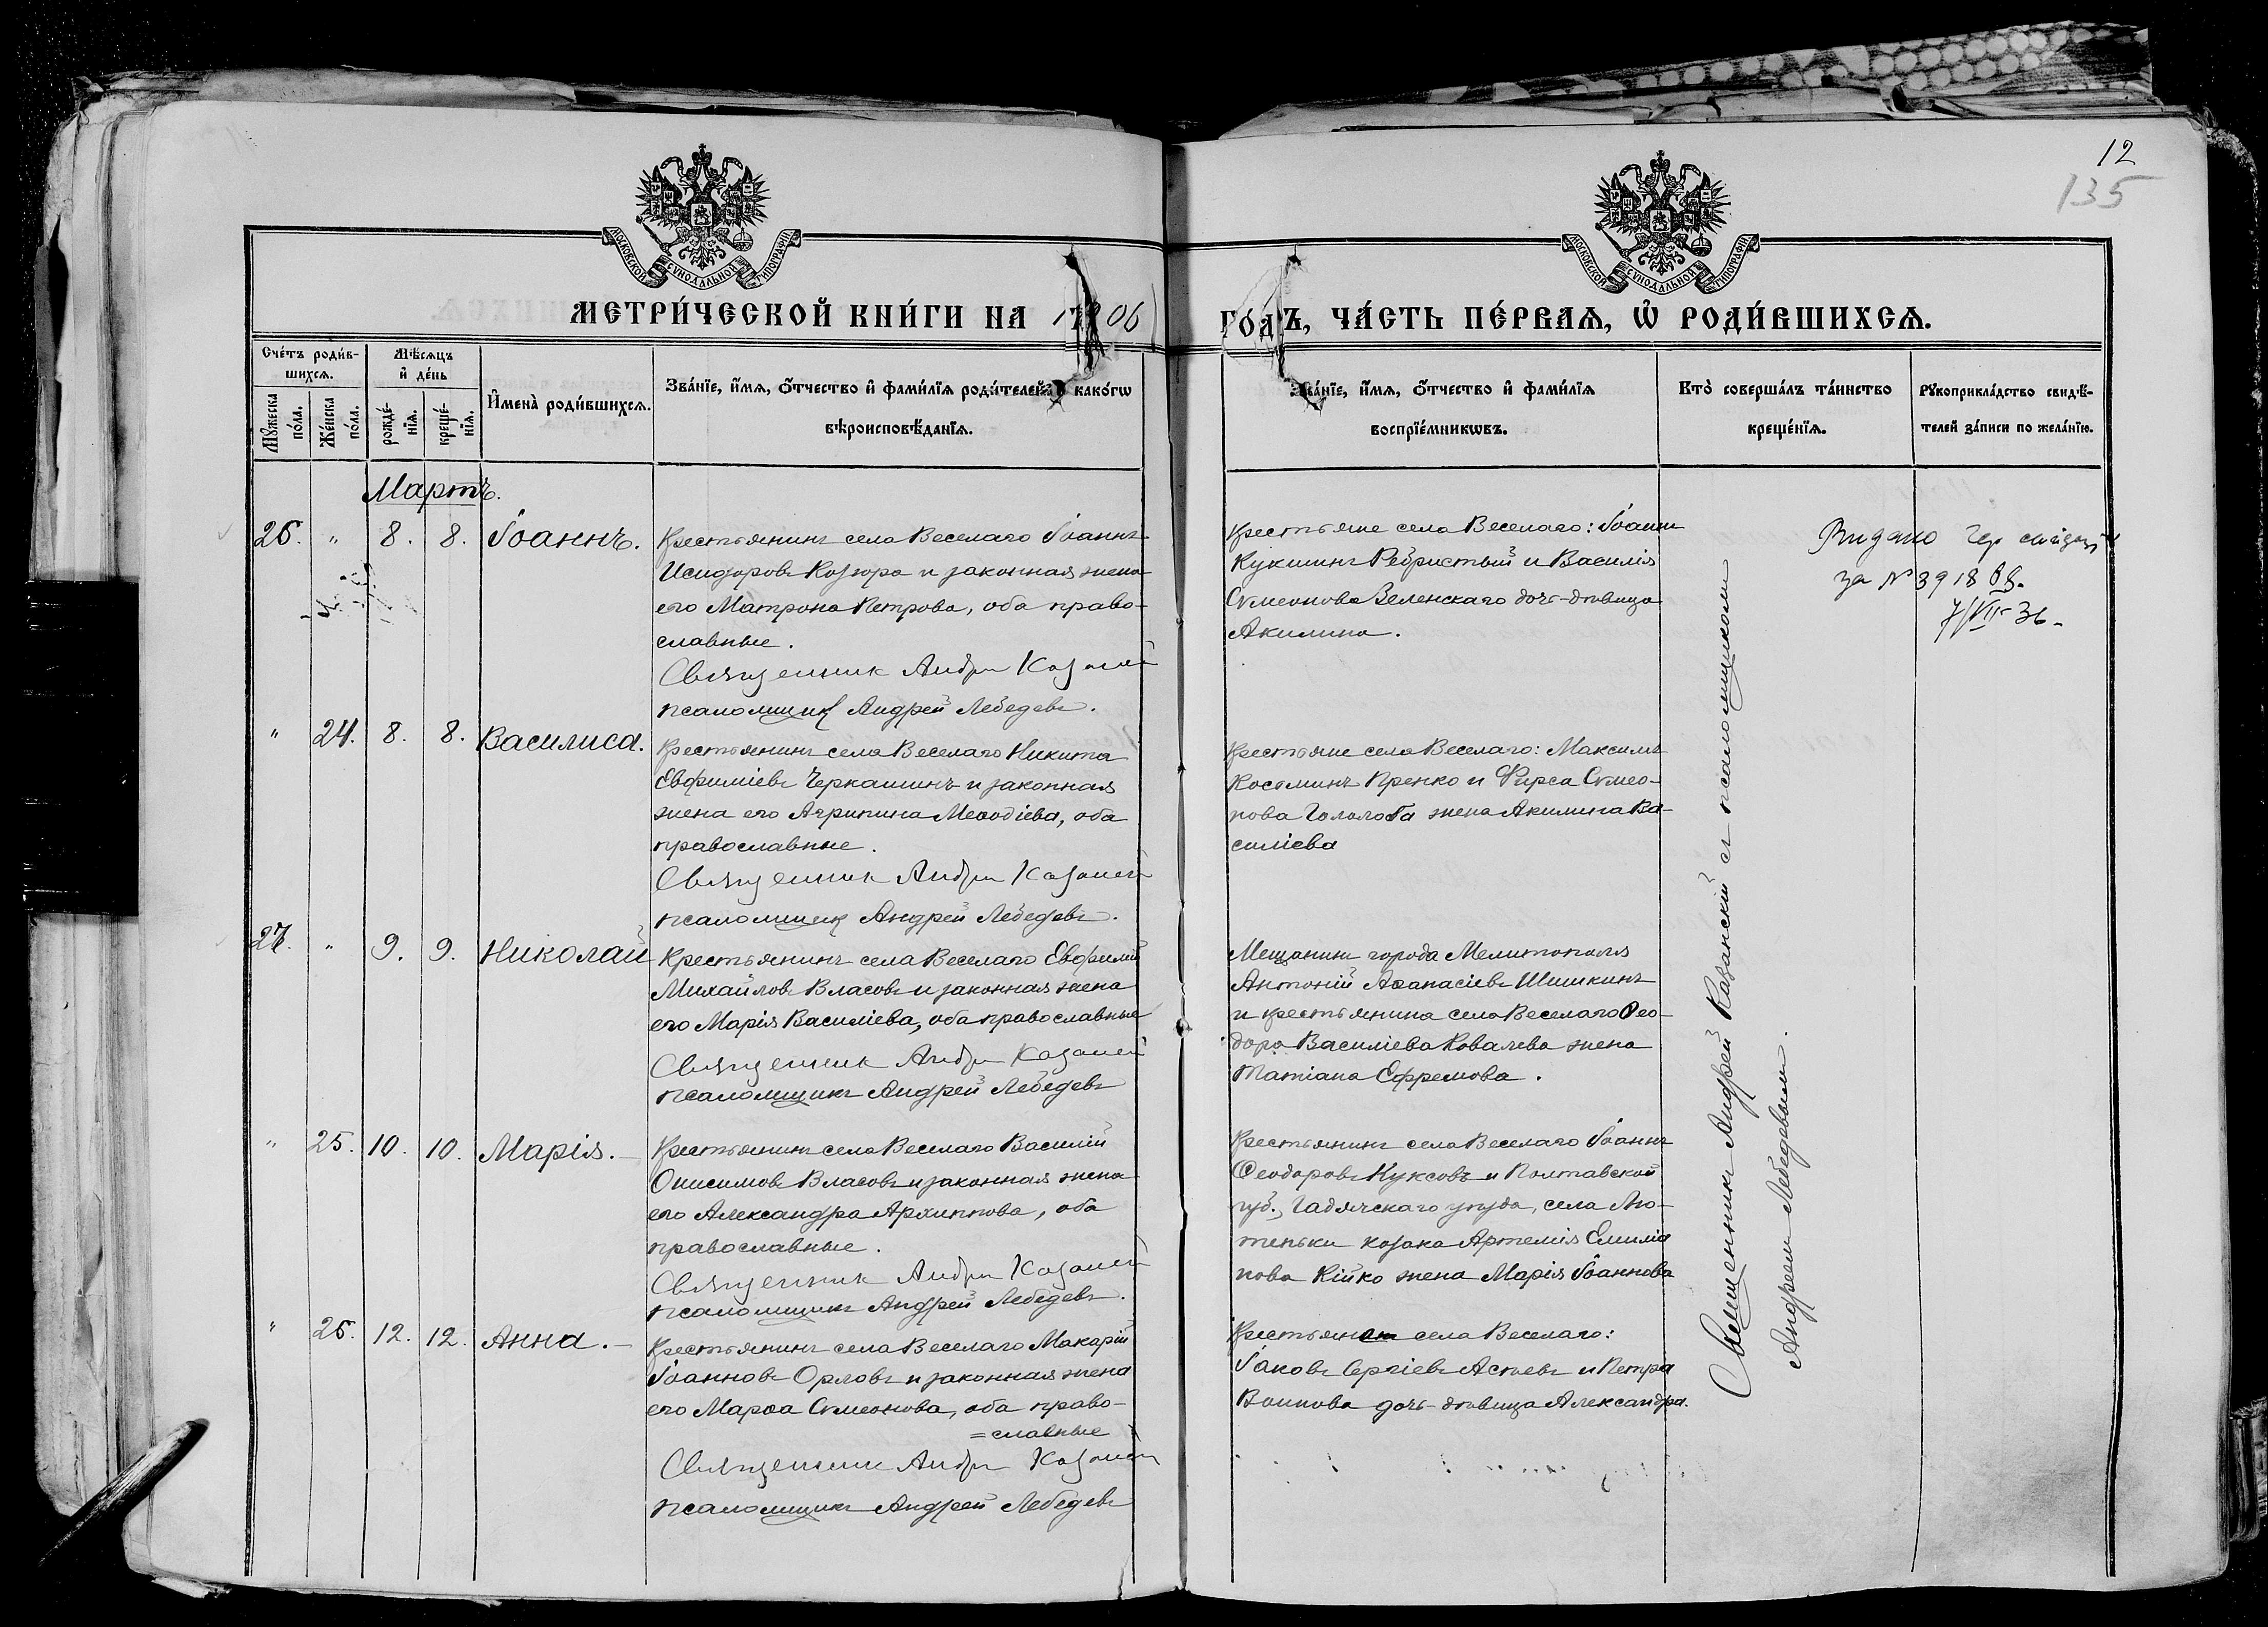 12
135
МОСКОВСКОЙ СѴНОДАЛЬНОЙ ТИПОГРАФІИ
МОСКОВСКОЙ СѴНОДАЛЬНОЙ ТИПОГРАФІИ
МЕТРИ́ЧЕСКОЙ КНИ́ГИ НА 1906
ГО́ДЪ, ЧА́СТЬ ПЕ́РВАЯ, Ѡ҆ РОДИ́ВШИХСЯ.
Сче́тъ роди́в-
шихся.
Мѣ́сяцъ
и҆ де́нь
Мꙋ́жеска по́ла.
Же́нска по́ла.
рожде́-
нїя.
креще́-
нїя.
И҆мена̀ роди́вшихся.
Зва́нїе, и҆́мя, ѻ҆́тчество и҆ фами́лїя роди́телей, и҆ како́гѡ
вѣроисповѣ́данїя.
Зва́нїе, и҆́мя, ѻ҆́тчество и҆ фами́лїя
воспрїе́мникѡвъ.
Кто̀ соверша́лъ та́инство
креще́нїя.
Рꙋкоприкла́дство свидѣ́-
телей за́писи по жела́нїю.
Мартъ.
26. " 8. 8. Іоаннъ.
Крестьянинъ села Веселаго Іоаннъ
Исидоровъ Козюра и законная жена
его Матрона Петрова, оба право-
славные.
Священникъ Андрей Казанскій
псаломщикъ Андрей Лебедевъ.
Крестьяне села Веселаго: Іоаннъ
Ребристый и Василія
Сѵмеонова Зеленскаго дочь-дѣвица
Акилина.
Видано
за № 3918
7/VII 36.
" 24. 8. 8. Василиса.
Крестьянинъ села Веселаго Никита
Евфиміевъ Черкашинъ и законная
жена его Агрипина Меѳодіева, оба
православные.
Священникъ Андрей Казанскій
псаломщикъ Андрей Лебедевъ.
Крестьяне села Веселаго: Максимъ
Косьминъ Пренко и Фирса Сѵмео-
нова Гололоба жена Акилина Ва-
силіева
27. " 9. 9. Николай
Крестьянинъ села Веселаго Евфимій
Михайловъ Власовъ и законная жена
его Марія Василіева, оба православные
Священникъ Андрей Казанскій
псаломщикъ Андрей Лебедевъ
Мещанинъ города Мелитополя
Антоній Аѳанасіевъ Шишкинъ
и крестьянина села Веселаго Ѳео-
дора Василіева Ковалева жена
Татіана Ефремова.
" 25. 10. 10. Марія.
Крестьянинъ села Веселаго Василій
Онисимовъ Власовъ и законная жена
его Александра Архиппова, оба
православные.
Священникъ Андрей Казанскій
псаломщикъ Андрей Лебедевъ.
Крестьянинъ села Веселаго Іоаннъ
Ѳеодоровъ Куксовъ и Полтавской
губ., Гадячскаго уѣзда, села Лю-
теньки козака Артемія Емилiа
нова Кійко жена Марія Іоаннова
" 26. 12. 12. Анна.
Крестьянинъ села Веселаго Макарій
Іоанновъ Орловъ и законная жена
его Марѳа Сѵмеонова, оба право-
=славные
Священникъ Андрей Казанскій
псаломщикъ Андрей Лебедевъ
села Веселаго:
Іаковъ Сергіевъ Астьевъ и Петра
Воинова дочь-дѣвица Александра.
Священникъ Андрей Казанскій съ псаломщикомъ
Андреем Лебедевымъ.